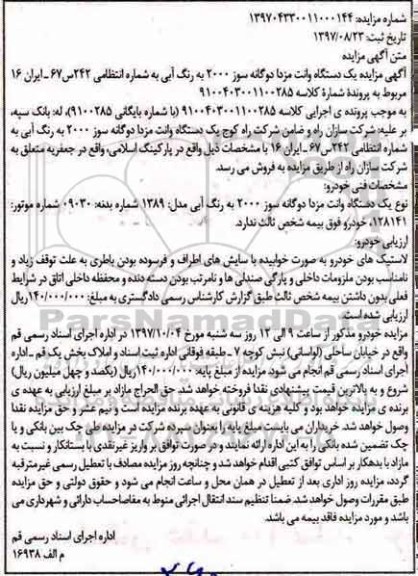 شماره مزایده: ۱۳۹۷۰۴۳۳۰۰۱۱۰۰۰۱۴۴
تاریخ ثبت: ۱۳۹۷/۰۸/۲۳
متن آگهی مزایده
آگهی مزایده یک دستگاه وانت مزدا دوگانه سوز ۲۰۰۰ به رنگ آبی به شماره انتظامی ۲۴۲س۶۷ ـ ایران ۱۶
مربوط به پرونده شمارهٔ کلاسه ۹۱۰۰۴۰۳۰۰۱۱۰۰۲۸۵
به موجب پرونده ی اجرایی کلاسه ۹۱۰۰۴۰۳۰۰۱۱۰۰۲۸۵ (با شماره بایگانی ۹۱۰۰۲۸۵)، له: بانک سپه،
بر علیه: شرکت سازان راه و ضامن شرکت راه کوچ یک دستگاه وانت مزدا دوگانه سوز ۲۰۰۰ به رنگ آبی به
شماره انتظامی ۲۴۲س۶۷ ـ ایران ۱۶ با مشخصات ذیل واقع در پارکینگ اسلامی، واقع در جعفریه متعلق به
شرکت سازان راه از طریق مزایده به فروش می رسد.
مشخصات فنی خودرو:
نوع یک دستگاه وانت مزدا دوگانه سوز ۲۰۰۰ به رنگ آبی مدل: ۱۳۸۹ شماره بدنه: ۰۹۰۳۰ شماره موتور:
۱۲۸۱۴۱، خودرو فوق بیمه شخص ثالث ندارد.
ارزیابی خودرو:
لاستیک های خودرو به صورت خوابیده با سایش های اطراف و فرسوده بودن باطری به علت توقف زیاد و
نامناسب بودن ملزومات داخلی و پارگی صندلی ها و نامرتب بودن دسته دنده و محفظه داخلی اتاق در شرایط
فعلی بدون داشتن بیمه شخص ثالث طبق گزارش کارشناس رسمی دادگستری به مبلغ: ۱۴۰/۰۰۰/۰۰۰ریال
ارزیابی شده است.
مزایده خودرو مذکور از ساعت ۹ الی ۱۲ روز سه شنبه مورخ ۱۳۹۷/۱۰/۰۴ در اداره اجرای اسناد رسمی قم
واقع در خیابان ساحلی (لواسانی) نبش کوچه ۷ ـ طبقه فوقانی اداره ثبت اسناد و املاک بخش یک قم ـ اداره
اجرای اسناد رسمی قم انجام می شود مزایده از مبلغ پایه ۱۴۰/۰۰۰/۰۰۰ریال (یکصد و چهل میلیون ریال)
شروع و به بالاترین قیمت پیشنهادی نقدا فروخته خواهد شد حق الحراج مازاد بر مبلغ ارزیابی به عهده ی
برنده ی مزایده خواهد بود و کلیه هزینه ی قانونی به عهده برنده مزایده است و نیم عشر و حق مزایده نقدا
وصول خواهد شد. خریداران می بایست مبلغ پایه را بعنوان سپرده شرکت در مزایده طی چک بین بانکی و یا
چک تضمین شده بانکی را به این اداره ارائه نمایند و در صورت توافق بر واریز غیرنقدی با بستانکار و نسبت به
مازاد با بدهکار بر اساس توافق کتبی اقدام خواهد شد و چنانچه روز مزایده مصادف با تعطیل رسمی غیرمترقبه
گردد، مزایده روز اداری بعد از تعطیل در همان محل و ساعت انجام می شود و حقوق دولتی و حق مزایده
طبق مقررات وصول خواهد شد. ضمنا تنظیم سند انتقال اجرائی منوط به مفاصاحساب دارائی و شهرداری می
باشد و مورد مزایده فاقد بیمه می باشد.
اداره اجرای اسناد رسمی قم
م الف ۱۶۹۳۸
ParsNamadData